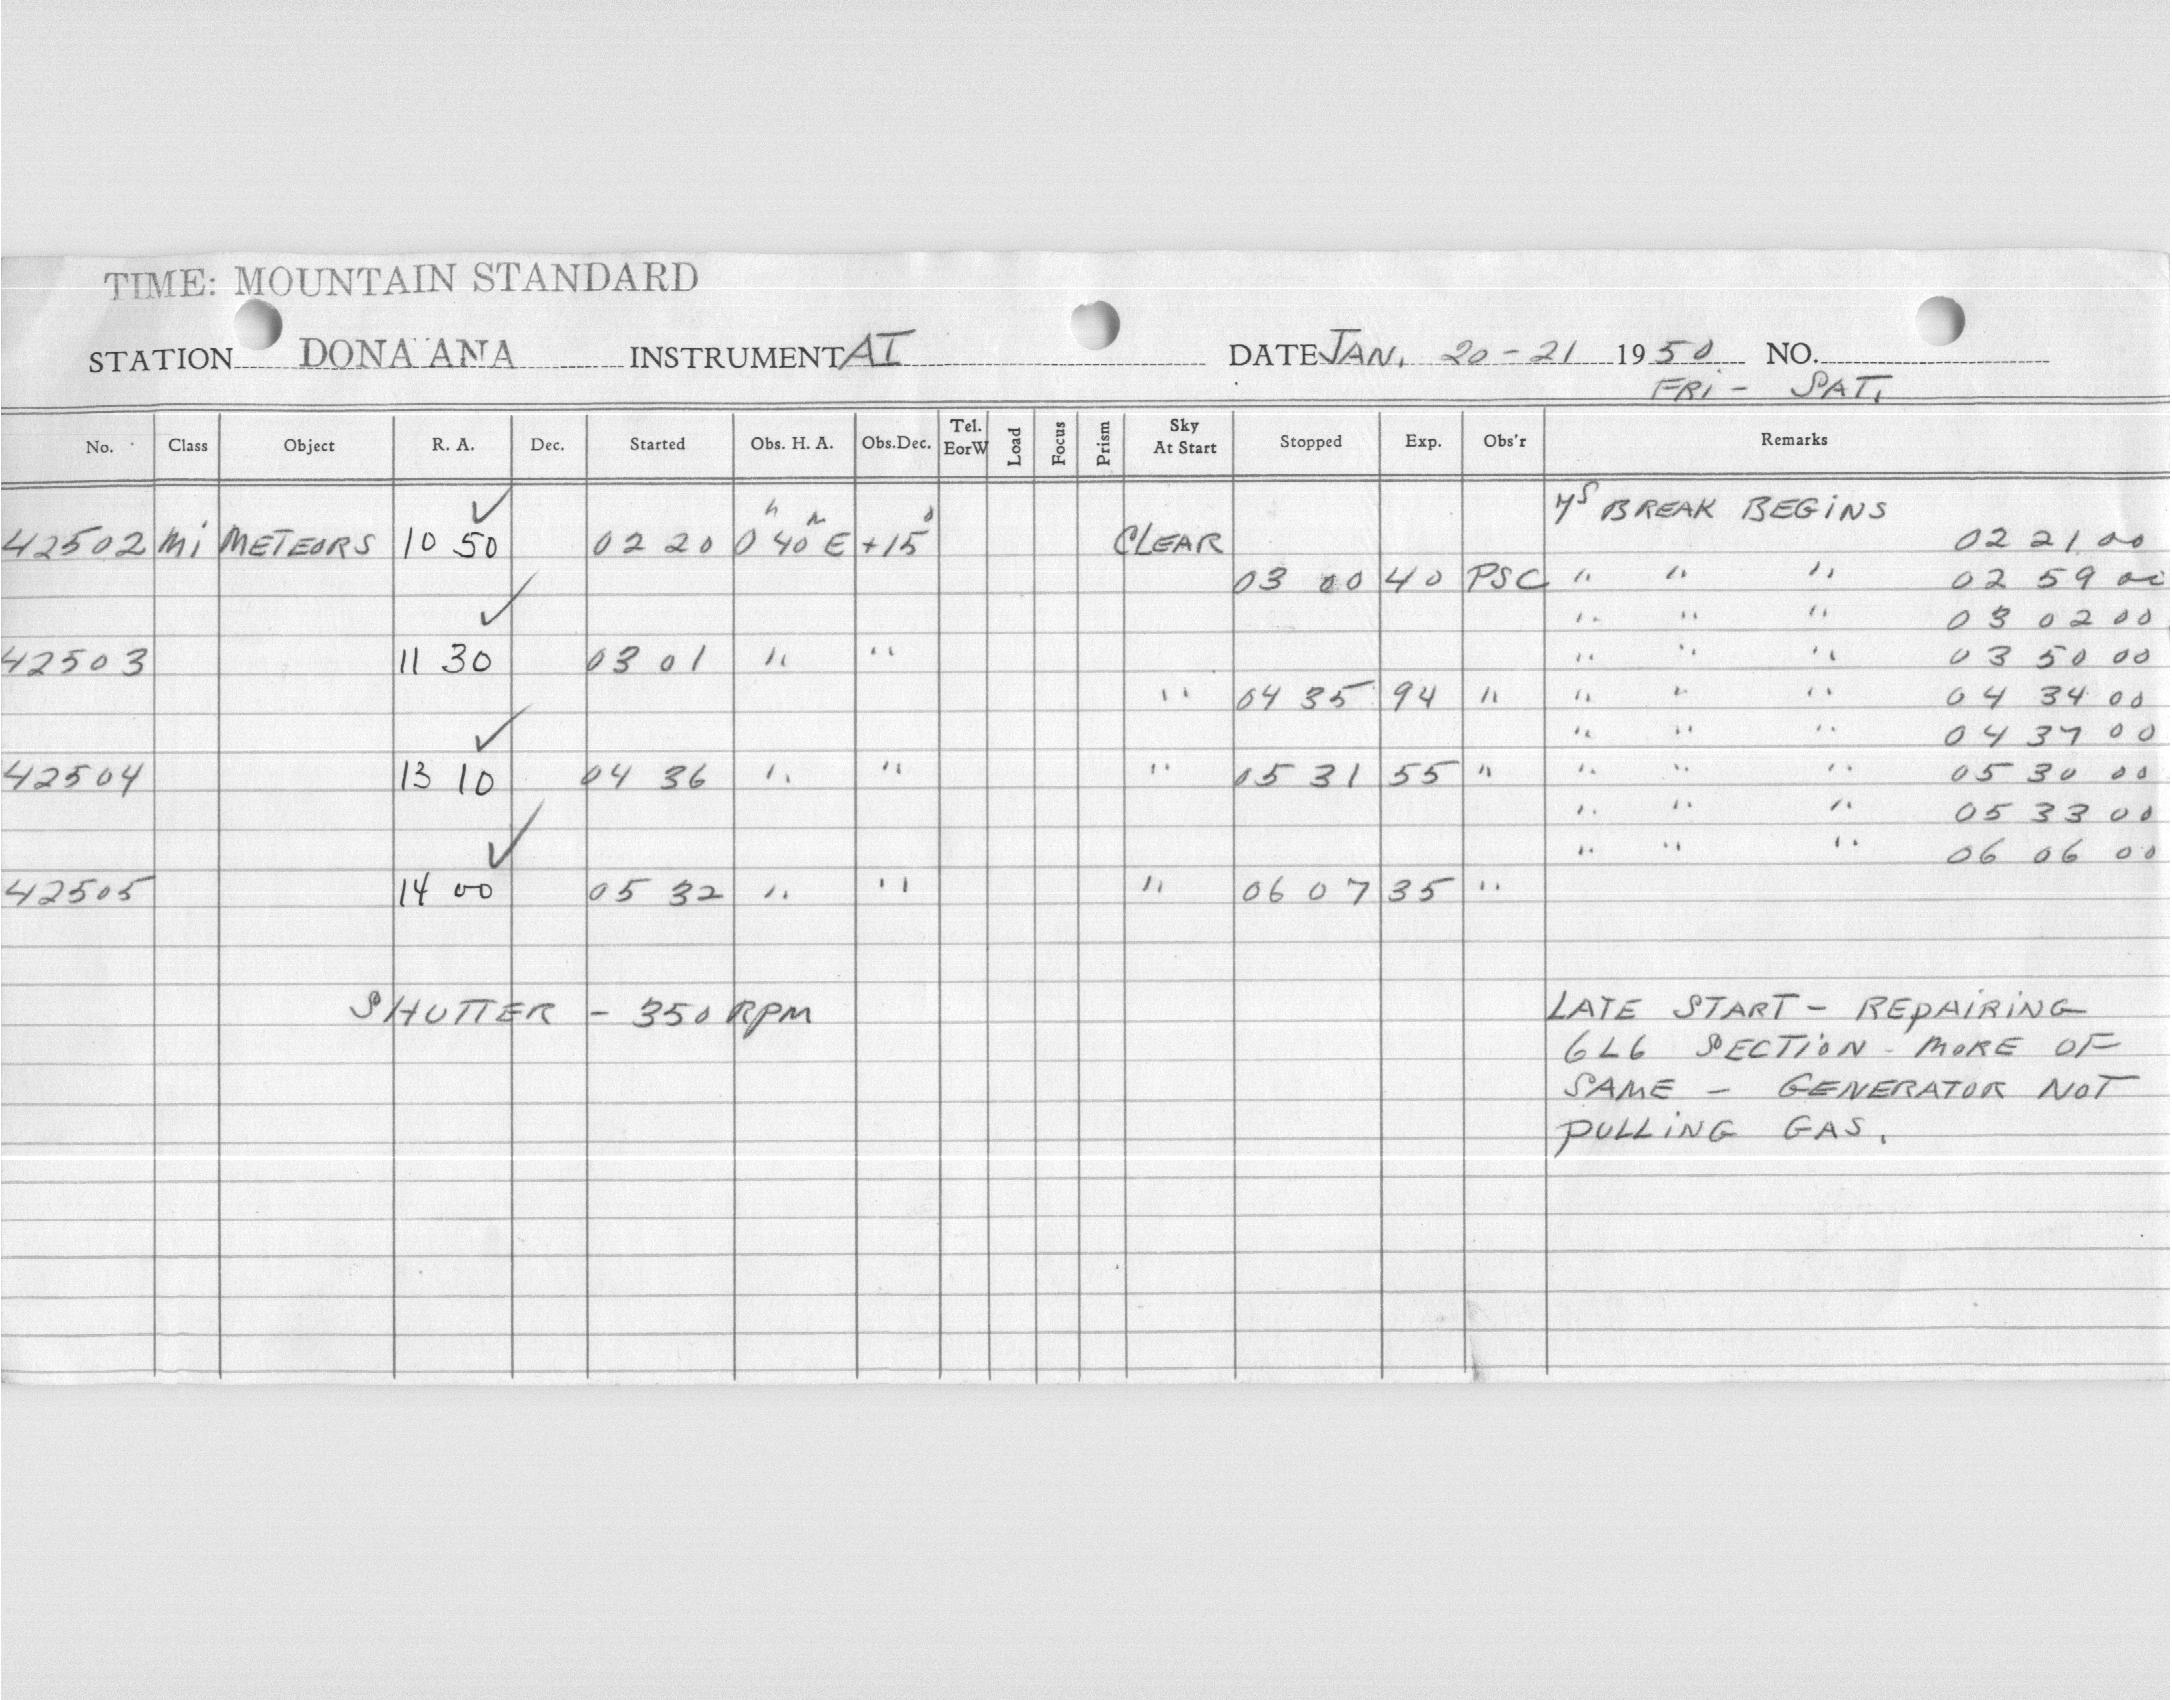 TIME: MOUNTAIN STANDARD
STATION DONA ANA INSTRUMENT AI DATE JAN. 20-21 1950 NO.
FRI - SAT.
No. Class Object R. A. Dec. Started Obs. H. A. Obs.Dec. Tel. EorW Load Focus Prism Sky At Start Stopped Exp. Obs'r Remarks
✓ 7S BREAK BEGINS
42502 Mi METEORS 10 50 02 20 0h 40m E +15° CLEAR 02 21 00
03 00 40 PSC " " " 02 59 00
✓ " " " 03 02 00
42503 11 30 03 01 " " " " " 03 50 00
" 04 35 94 " " " " 04 34 00
✓ " " " 04 37 00
42504 13 10 04 36 " " " 05 31 55 " " " " 05 30 00
" " " 05 33 00
✓ " " " 06 06 00
42505 14 00 05 32 " " " 06 07 35 "
SHUTTER - 350 RPM LATE START - REPAIRING
6L6 SECTION - MORE OF
SAME - GENERATOR NOT
PULLING GAS.